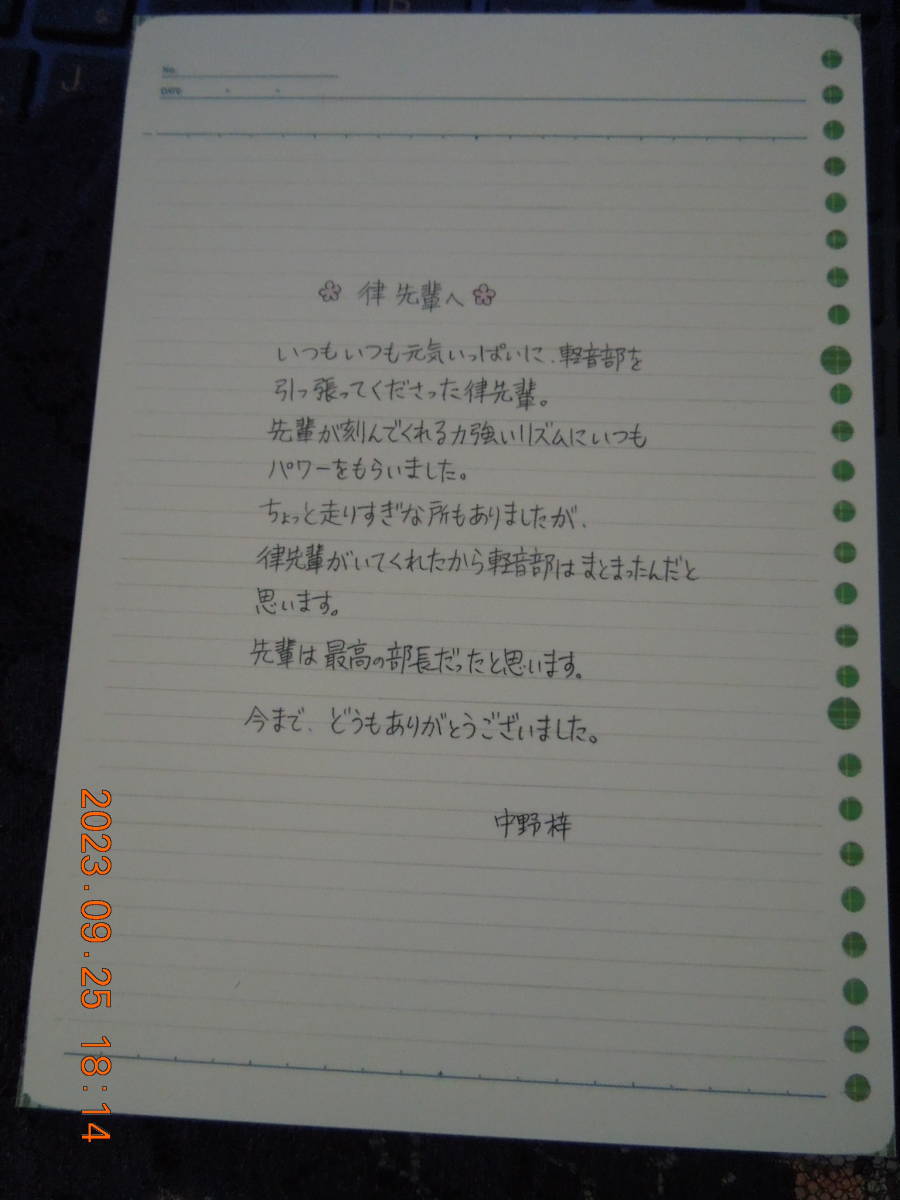 No.
DATE
律先輩へ
いつもいつも元気いっぱいに、軽音部を
引っ張ってくださった律先輩。
先輩が刻んでくれる力強いリズムにいつも
パワーをもらいました。
ちょっと走りすぎな所もありましたが、
律先輩がいてくれたから軽音部はまとまったんだと
思います。
先輩は最高の部長だったと思います。
今まで、どうもありがとうございました。
中野梓
2023.09.25 18:14